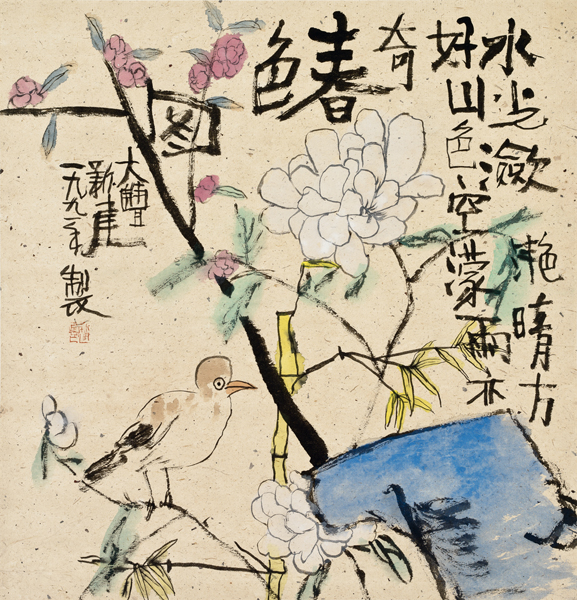 水光瀲
艳晴方
好山色空濛雨亦
奇
春色
图
大豐
新建
一九九一年
製